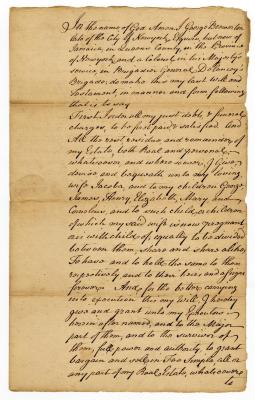 In the name of God Amen I George Brewerton
late of the City of Newyork Esquire, but now of
Jamaica, in Queens County, in the Province
of Newyork, and a Colonel in his Majesty's
service, in Brigadier General DeLancey's
Brigade; do make this my last will and
testament, in manner and form following
that is to say
First I order all my just debts & funeral
charges, to be first paid & satisfied And
All the rest residue and remainder of
my Estate, both Real and personal
whatsoever and wheresoever, I Give
devise and bequeath unto my loving
wife Jacoba, and to my children George,
James, Henry, Elizabeth, Mary and
and to such child or children
of which my said wife is now pregnant
or with child of, equally to be divided
between them, share and share alike
To have and to hold the same to them
respectively and to their heirs and assigns
forever. And for the better carrying
into execution this my will, I hereby
give and grant unto my Executors
herein after named, and to the Major
part of them, and to the survivor of
them, full power and authority to grant
bargain and sell in Fee Simple, all or
any part of my Real Estate, whatsoever
to